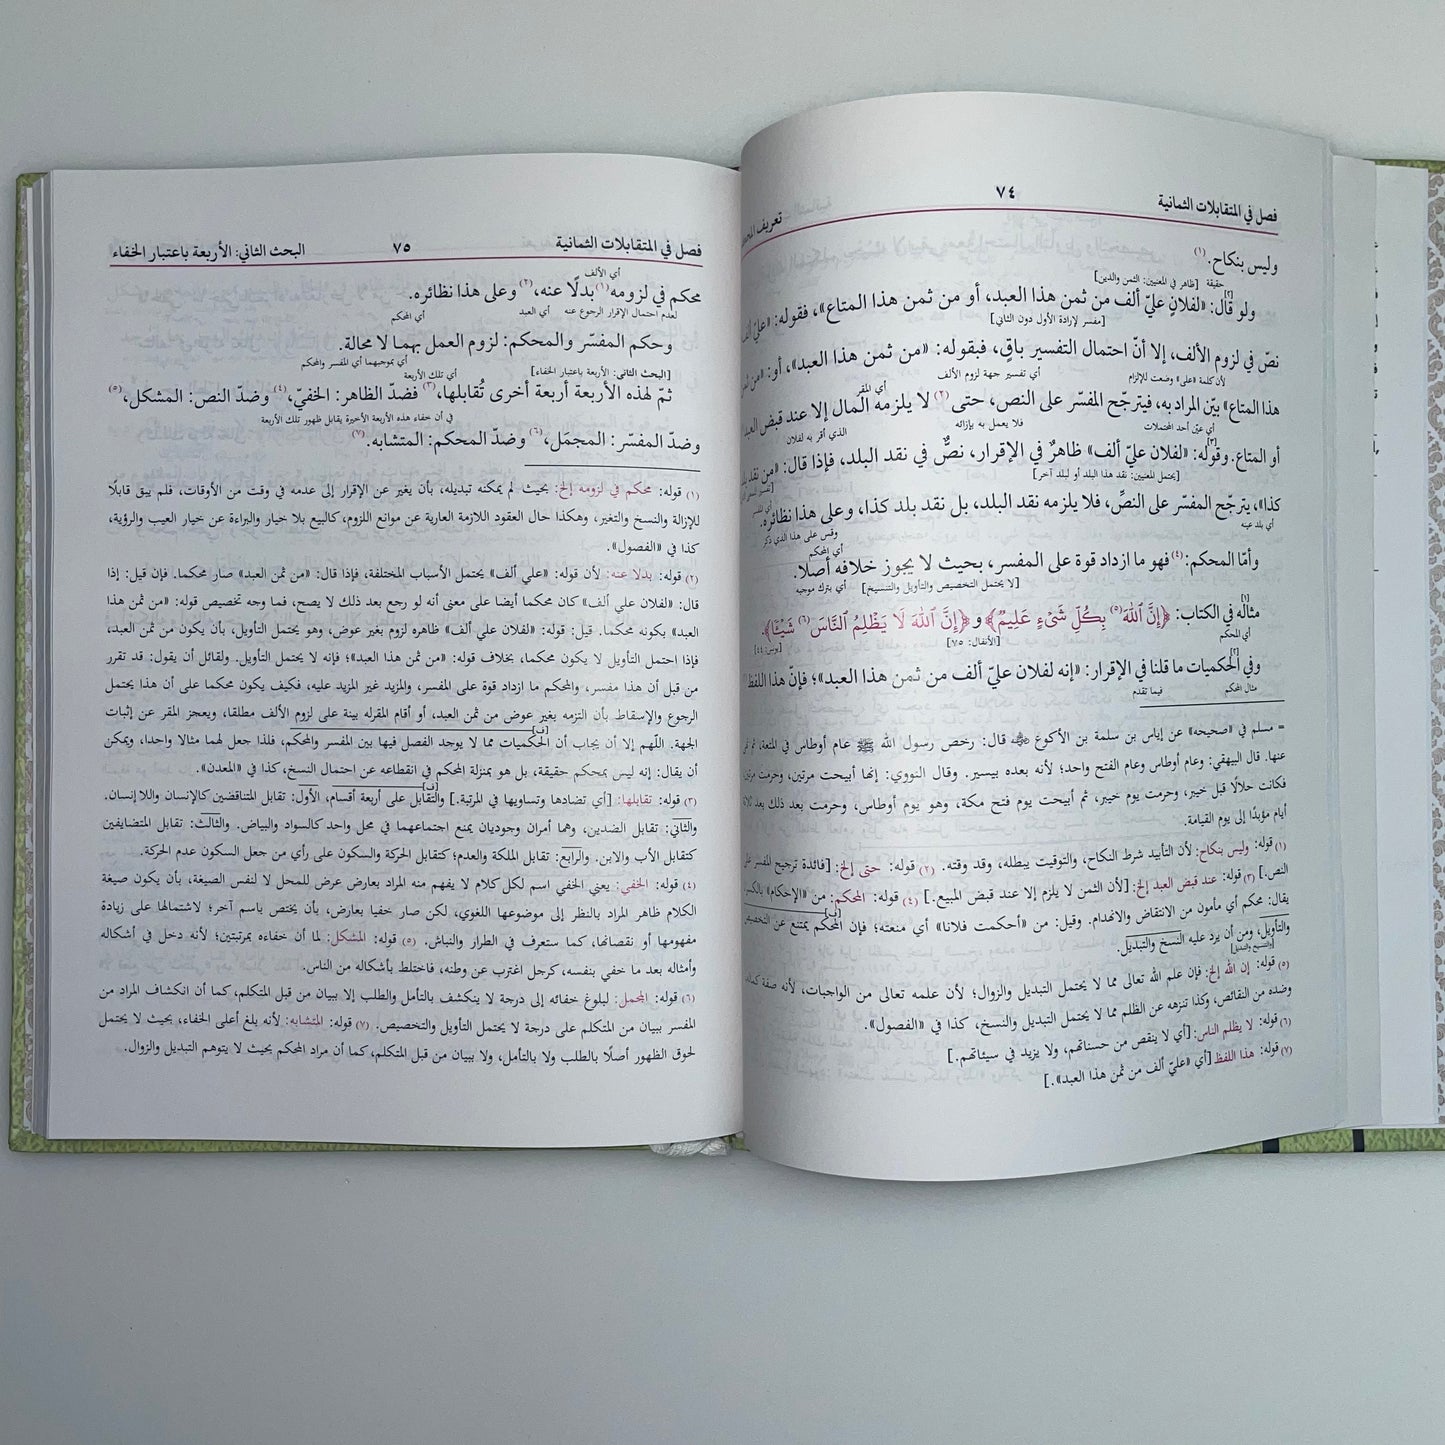 فصل في المتقابلات الثمانية
٧٤
وليس بنكاح.(١)
حقيقة [ظاهر في المعنيين: الثمن والدين]
ولو قال: «لفلان عليّ ألف من ثمن هذا العبد، أو من ثمن هذا المتاع»، فقوله: «عليّ ألف
[مفسر لإرادة الأول دون الثاني]
نصّ في لزوم الألف، إلا أنّ احتمال التفسير باقٍ، فبقوله: «من ثمن هذا العبد»، أو: «من ثمن
لأن كلمة «على» وضعت للإلزام أي تفسير جهة لزوم الألف
هذا المتاع» بيّن المراد به، فيترجّح المفسّر على النص، حتى(٢) لا يلزمه المال إلا عند قبض العبد
أي عيّن أحد المحتملات فلا يعمل به بإزائه الذي أقر به لفلان
أو المتاع. وقوله: «لفلان عليّ ألف» ظاهرٌ في الإقرار، نصٌّ في نقد البلد، فإذا قال: «من نقد بلد
[يحتمل المعنيين: نقد هذا البلد أو لبلد آخر]
كذا»، يترجّح المفسّر على النصّ، فلا يلزمه نقد البلد، بل نقد بلد كذا، وعلى هذا نظائره.
أي بلد عينه وقس على هذا الذي ذكر
أي المحكم
وأمّا المحكم:(٤) فهو ما ازداد قوة على المفسر، بحيث لا يجوز خلافه أصلًا.
[لا يحتمل التخصيص والتأويل والتنسيخ] أي بترك موجبه
مثاله في الكتاب: ﴿إِنَّ ٱللَّهَ(٥) بِكُلِّ شَيْءٍ عَلِيمٌ﴾ و﴿إِنَّ ٱللَّهَ لَا يَظْلِمُ ٱلنَّاسَ(٦) شَيْئًا﴾.
أي المحكم [الأنفال: ٧٥] [يونس: ٤٤]
وفي الحكميات ما قلنا في الإقرار: «إنه لفلان عليّ ألف من ثمن هذا العبد»؛ فإنّ هذا اللفظ
مثال المحكم فيما تقدم
= مسلم في «صحيحه» عن إياس بن سلمة بن الأكوع ﷺ قال: رخص رسول الله ﷺ عام أوطاس في المتعة، ثم نهى
عنها. قال البيهقي: وعام أوطاس وعام الفتح واحد؛ لأنه بعده بيسير. وقال النووي: إنها أبيحت مرتين، وحرمت مرتين،
فكانت حلالًا قبل خيبر، وحرمت يوم خيبر، ثم أبيحت يوم فتح مكة، وهو يوم أوطاس، وحرمت بعد ذلك بعد ثلاثة
أيام مؤبدًا إلى يوم القيامة.
(١) قوله: وليس بنكاح: لأن التأبيد شرط النكاح، والتوقيت يبطله، وقد وقته. (٢) قوله: حتى إلخ: [فائدة ترجيح المفسر على
النص.] (٣) قوله: عند قبض العبد إلخ: [لأن الثمن لا يلزم إلا عند قبض المبيع.] (٤) قوله: المحكم: من «الإحكام» بالكسر.
يقال: محكم أي مأمون من الانتقاض والانهدام. وقيل: من «أحكمت فلانا» أي منعته؛ فإن المحكم يمتنع عن التخصيص
والتأويل، ومن أن يرد عليه النسخ والتبديل.
(٥) قوله: إن الله إلخ: فإن علم الله تعالى مما لا يحتمل التبديل والزوال؛ لأن علمه تعالى من الواجبات، لأنه صفة كمال،
وضده من النقائص، وكذا تنزهه عن الظلم مما لا يحتمل التبديل والنسخ، كذا في «الفصول».
(٦) قوله: لا يظلم الناس: [أي لا ينقص من حسناتهم، ولا يزيد في سيئاتهم.]
(٧) قوله: هذا اللفظ [أي «عليّ ألف من ثمن هذا العبد».]
فصل في المتقابلات الثمانية
٧٥
البحث الثاني: الأربعة باعتبار الخفاء
أي الألف
محكم في لزومه(١) بدلًا عنه،(٢) وعلى هذا نظائره.
لعدم احتمال الإقرار الرجوع عنه أي العبد أي المحكم
وحكم المفسّر والمحكم: لزوم العمل بهما لا محالة.
[البحث الثاني: الأربعة باعتبار الخفاء] أي بموجبهما أي المفسر والمحكم
أي تلك الأربعة
ثمّ لهذه الأربعة أربعة أخرى تُقابلها،(٣) فضدّ الظاهر: الخفيّ،(٤) وضدّ النص: المشكل،(٥)
في أن خفاء هذه الأربعة الأخيرة يقابل ظهور تلك الأربعة
وضدّ المفسّر: المجمَل،(٦) وضدّ المحكم: المتشابه.(٧)
(١) قوله: محكم في لزومه إلخ: بحيث لم يمكنه تبديله، بأن يغير عن الإقرار إلى عدمه في وقت من الأوقات، فلم يبق قابلًا
للإزالة والنسخ والتغير، وهكذا حال العقود اللازمة العارية عن موانع اللزوم، كالبيع بلا خيار والبراءة عن خيار العيب والرؤية،
كذا في «الفصول».
(٢) قوله: بدلا عنه: لأن قوله: «علي ألف» يحتمل الأسباب المختلفة، فإذا قال: «من ثمن العبد» صار محكما. فإن قيل: إذا
قال: «لفلان علي ألف» كان محكما أيضا على معنى أنه لو رجع بعد ذلك لا يصح، فما وجه تخصيص قوله: «من ثمن هذا
العبد» بكونه محكما. قيل: قوله: «لفلان علي ألف» ظاهره لزوم بغير عوض، وهو يحتمل التأويل، بأن يكون من ثمن العبد،
فإذا احتمل التأويل لا يكون محكما، بخلاف قوله: «من ثمن هذا العبد»؛ فإنه لا يحتمل التأويل. ولقائل أن يقول: قد تقرر
من قبل أن هذا مفسر، والمحكم ما ازداد قوة على المفسر، والمزيد غير المزيد عليه، فكيف يكون محكما على أن هذا يحتمل
الرجوع والإسقاط بأن التزمه بغير عوض من ثمن العبد، أو أقام المقرله بينة على لزوم الألف مطلقا، ويعجز المقر عن إثبات
الجهة. اللّهم إلا أن يجاب أن الحكميات مما لا يوجد الفصل فيها بين المفسر والمحكم، فلذا جعل لهما مثالا واحدا، ويمكن
أن يقال: إنه ليس بمحكم حقيقة، بل هو بمنزلة المحكم في انقطاعه عن احتمال النسخ، كذا في «المعدن».
(٣) قوله: تقابلها: [أي تضادها وتساويها في المرتبة.] والتقابل على أربعة أقسام، الأول: تقابل المتناقضين كالإنسان واللاإنسان.
والثاني: تقابل الضدين، وهما أمران وجوديان يمنع اجتماعهما في محل واحد كالسواد والبياض. والثالث: تقابل المتضايفين
كتقابل الأب والابن. والرابع: تقابل الملكة والعدم؛ كتقابل الحركة والسكون على رأي من جعل السكون عدم الحركة.
(٤) قوله: الخفي: يعني الخفي اسم لكل كلام لا يفهم منه المراد بعارض عرض للمحل لا لنفس الصيغة، بأن يكون صيغة
الكلام ظاهر المراد بالنظر إلى موضوعها اللغوي، لكن صار خفيا بعارض، بأن يختص باسم آخر؛ لاشتمالها على زيادة
مفهومها أو نقصانها، كما ستعرف في الطرار والنباش. (٥) قوله: المشكل: لما أن خفاءه بمرتبتين؛ لأنه دخل في أشكاله
وأمثاله بعد ما خفي بنفسه، كرجل اغترب عن وطنه، فاختلط بأشكاله من الناس.
(٦) قوله: المجمل: لبلوغ خفائه إلى درجة لا ينكشف بالتأمل والطلب إلا ببيان من قبل المتكلم، كما أن انكشاف المراد من
المفسر ببيان من المتكلم على درجة لا يحتمل التأويل والتخصيص. (٧) قوله: المتشابه: لأنه بلغ أعلى الخفاء، بحيث لا يحتمل
لحوق الظهور أصلًا بالطلب ولا بالتأمل، ولا ببيان من قبل المتكلم، كما أن مراد المحكم بحيث لا يتوهم التبديل والزوال.